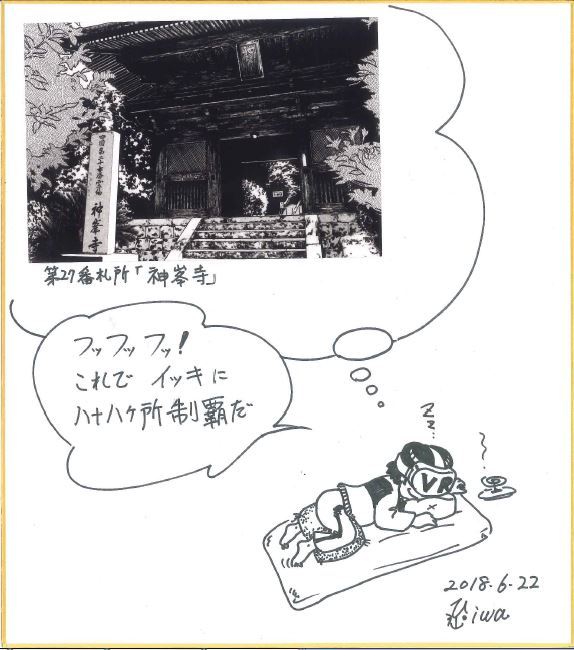 四国第二十七番霊場
神峯寺
第27番札所「神峯寺」
フッフッフッ!
これで イッキに
八十八ヶ所制覇だ
ZZ...
VR
2018.6.22
iwa